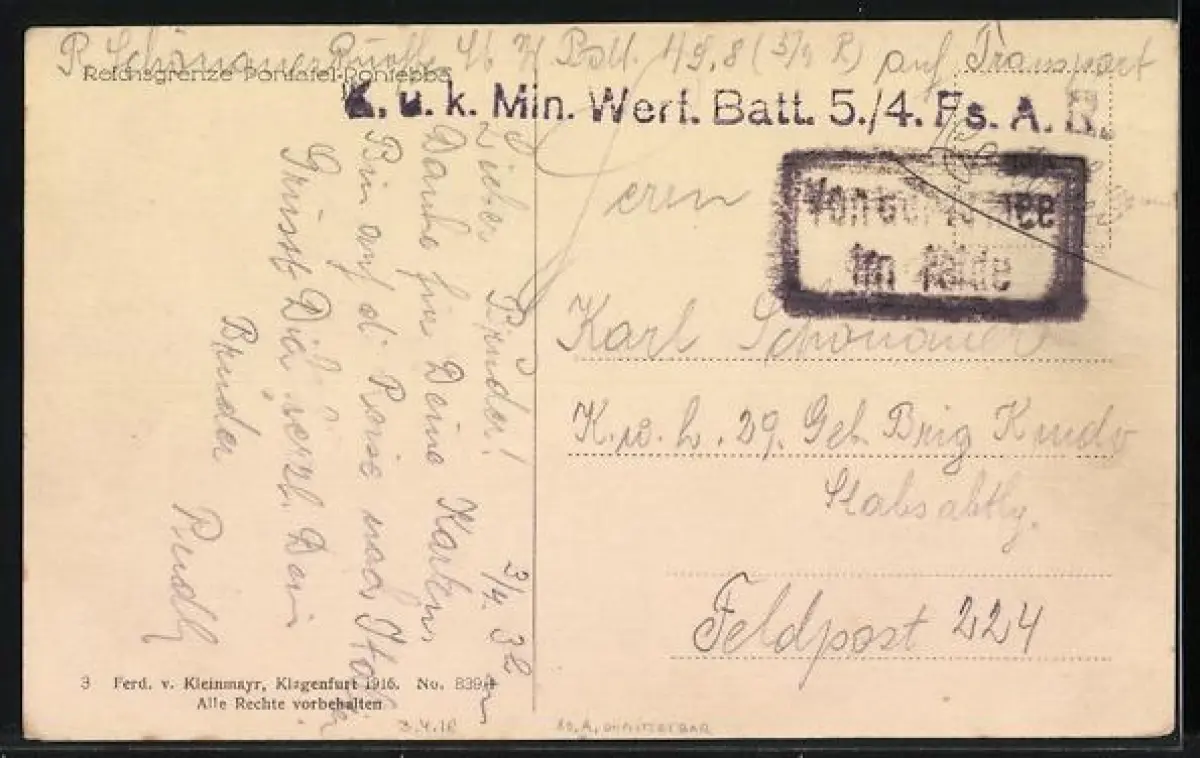 R. Schönauer 4/6 Batt. 4 S. 8 (5/4 R) auf Transport
Reichsgrenze Pontafel-Pontebba
K. u. k. Min. Werf. Batt. 5./4. Fs. A. R.
Von der Armee
im Felde
3/4. 18
Lieber Bruder!
Danke für Deine Karten,
Bin auf d. Reise nach Ital
Grüsst Dich herzl. Dein
Bruder
Rudl
Herrn
Karl Schönauer
K. u. k. 29. Geb. Brig Kmdo
Stabsabtlg.
Feldpost 224
3 Ferd. v. Kleinmayr, Klagenfurt 1916. No. 839
Alle Rechte vorbehalten
3.4.18